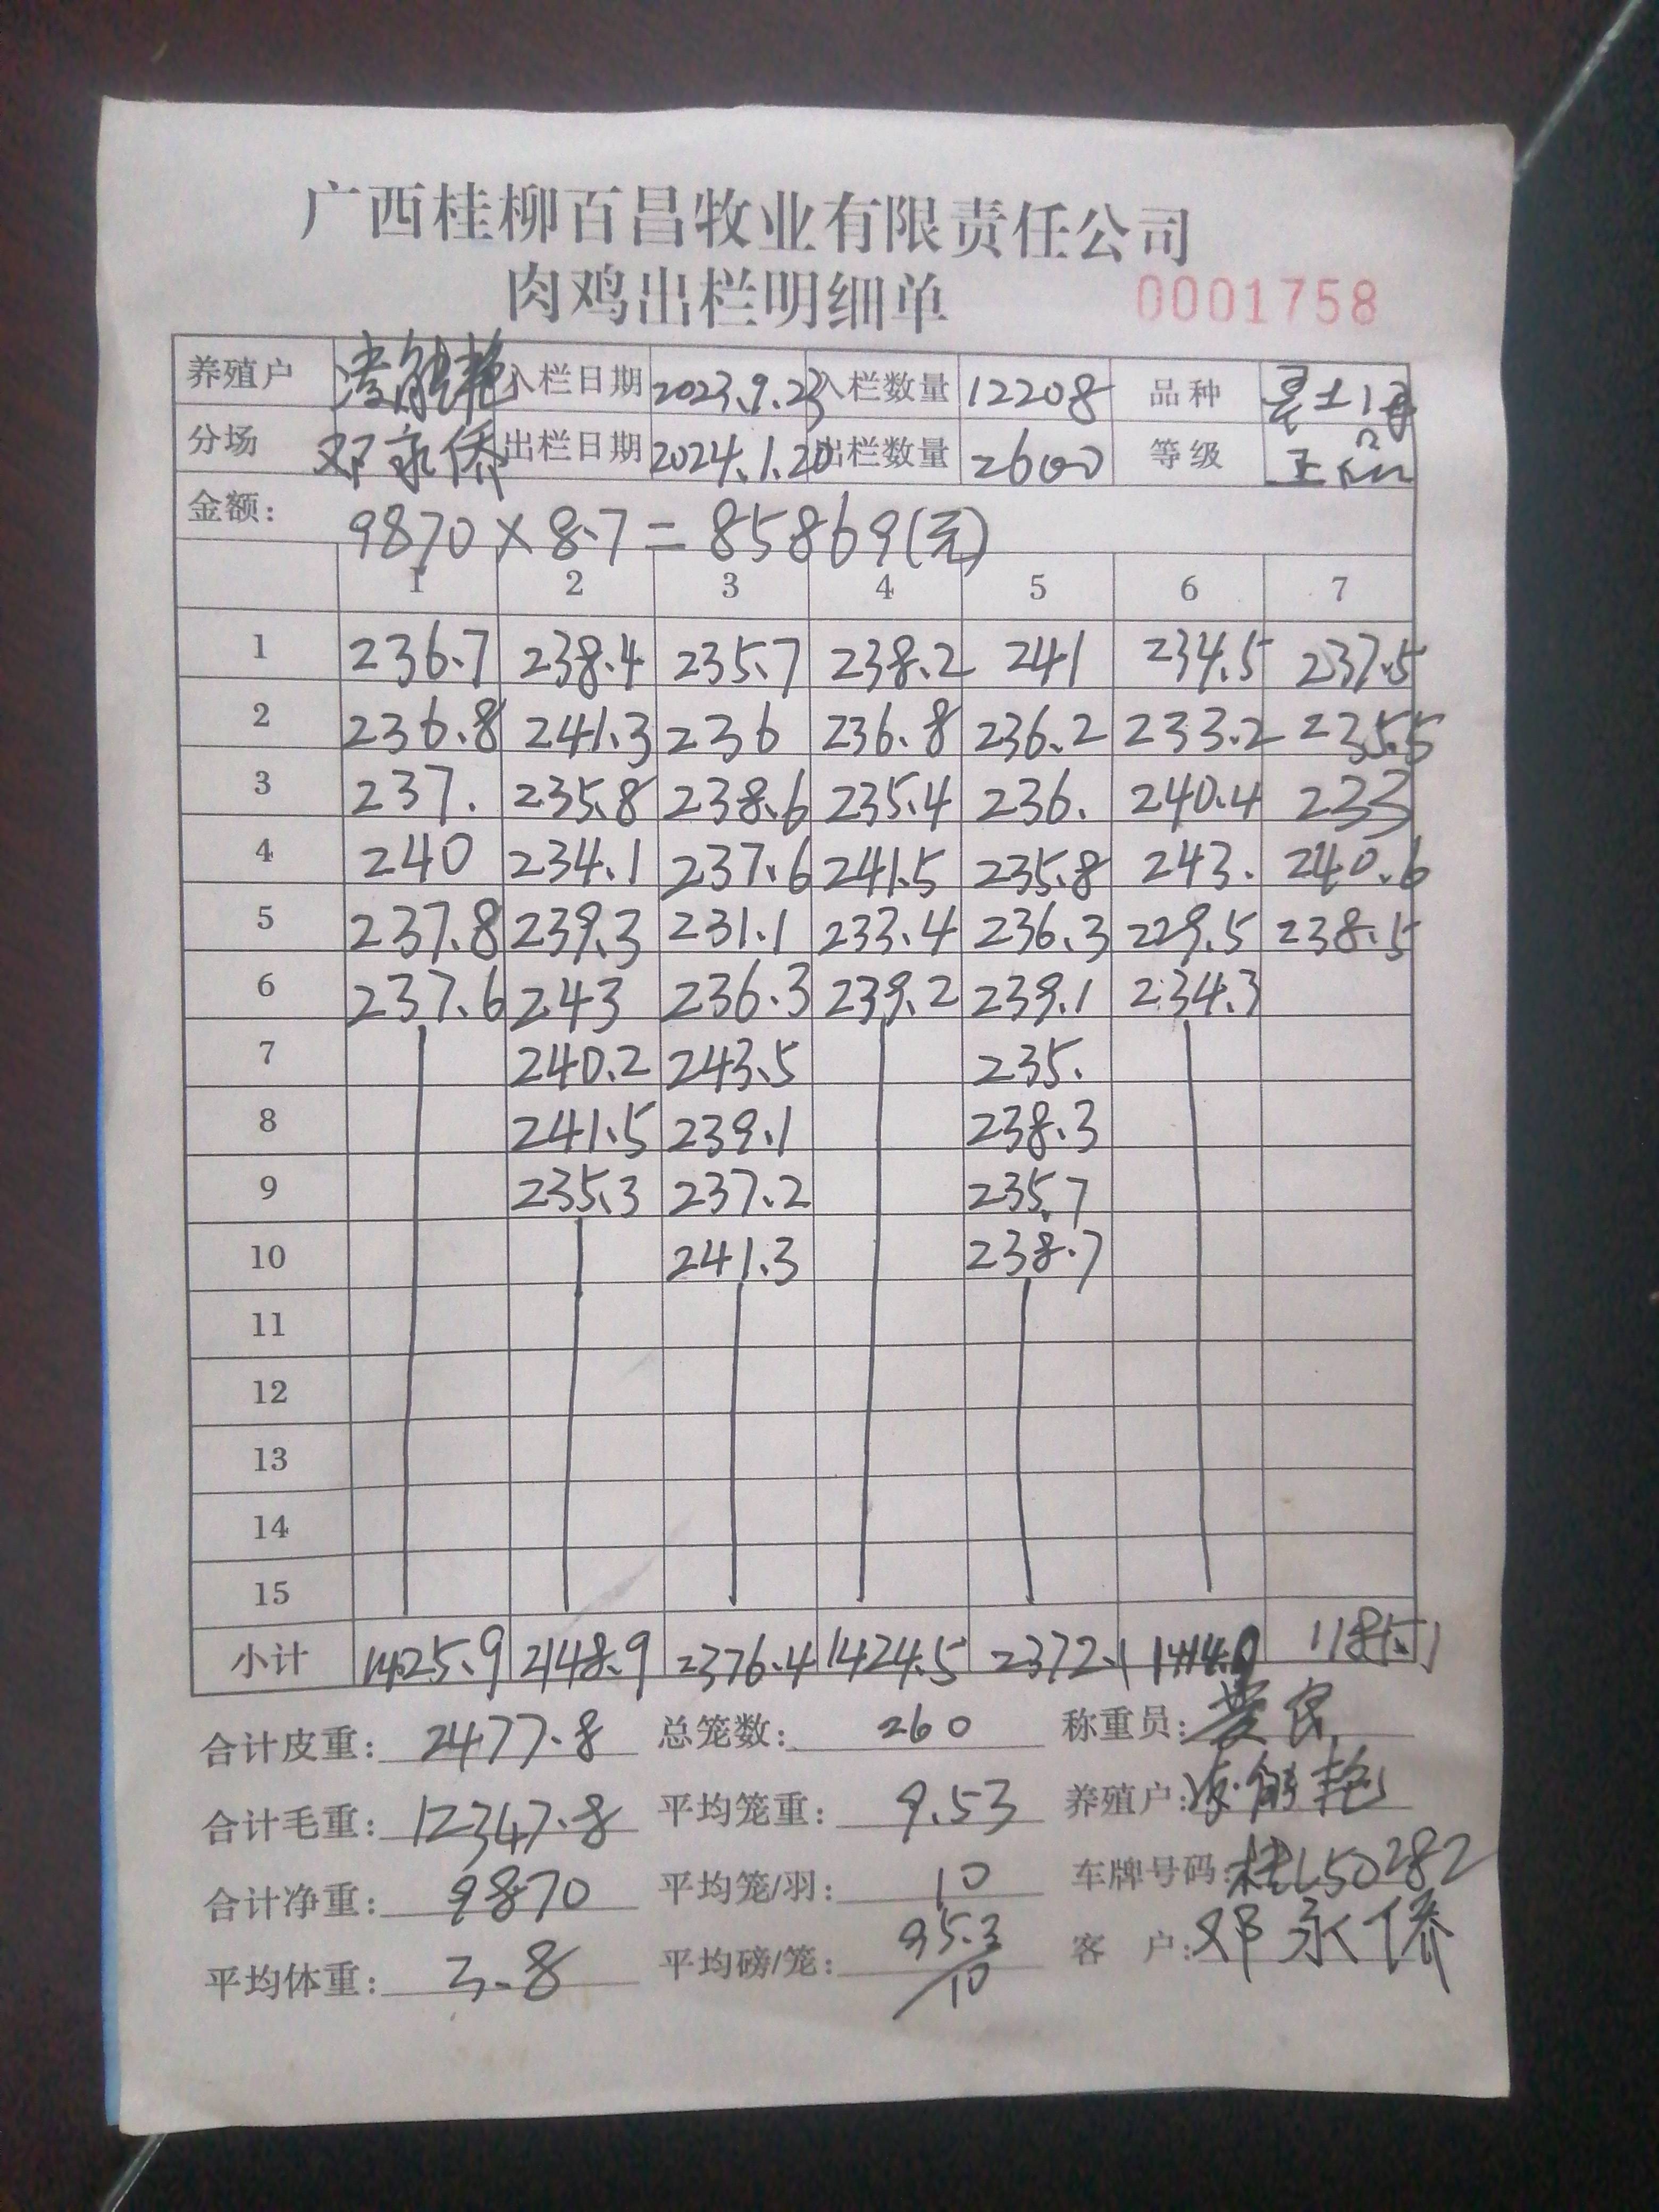 广西桂柳百昌牧业有限责任公司
肉鸡出栏明细单 0001758
养殖户 凌能艳 入栏日期 2023.9.23 入栏数量 12208 品种 土1号
分场 邓永侨 出栏日期 2024.1.20 出栏数量 2600 等级 正品
金额: 9870×8.7=85869(元)
1 2 3 4 5 6 7
1 236.7 238.4 235.7 238.2 241 234.5 237.5
2 236.8 241.3 236 236.8 236.2 233.2 235.5
3 237. 235.8 238.6 235.4 236. 240.4 233
4 240 234.1 237.6 241.5 235.8 243. 240.6
5 237.8 239.3 231.1 233.4 236.3 229.5 238.5
6 237.6 243 236.3 239.2 239.1 234.3
7 240.2 243.5 235.
8 241.5 239.1 238.3
9 235.3 237.2 235.7
10 241.3 238.7
11
12
13
14
15
小计 1425.9 2148.9 2376.4 1424.5 2372.1 1414.9 1185.1
合计皮重: 2477.8 总笼数: 260 称重员:
合计毛重: 12347.8 平均笼重: 9.53 养殖户: 凌能艳
合计净重: 9870 平均笼/羽: 10 车牌号码: 桂L50282
平均体重: 3.8 平均磅/笼: 95.3/10 客 户: 邓永侨